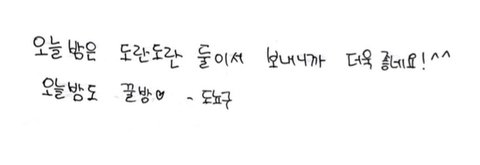 오늘밤은 도란도란 둘이서 보내니까 더욱 좋네요!^^
오늘밤도 꿀밤♡ - 도뇨구